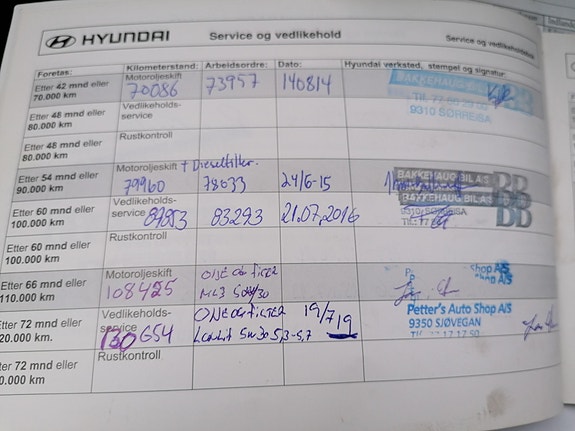 HYUNDAI Service og vedlikehold Service og vedlikehold
Foretas: Kilometerstand: Arbeidsordre: Dato: Hyundai verksted, stempel og signatur:
Etter 42 mnd eller Motoroljeskift
70.000 km 70086 73957 140814 BAKKEHAUG BIL AS
9310 SØRREISA
Etter 48 mnd eller Vedlikeholds-
80.000 km service
Etter 48 mnd eller Rustkontroll
80.000 km
Etter 54 mnd eller Motoroljeskift + Dieselfilter.
90.000 km 79960 78033 24/6-15 BAKKEHAUG BIL AS BB
Etter 60 mnd eller Vedlikeholds- BAKKEHAUG BIL AS BB
100.000 km service 83293 21.07.2016 9310 SØRREISA
Etter 60 mnd eller Rustkontroll
100.000 km
Etter 66 mnd eller Motoroljeskift
110.000 km 108425 Shop A/S
Etter 72 mnd eller Vedlikeholds- 19/7 19 Petter's Auto Shop A/S
20.000 km. service 9350 SJØVEGAN
130654 5w30 5,3-5,7 17 17 50
Etter 72 mnd eller Rustkontroll
0.000 km